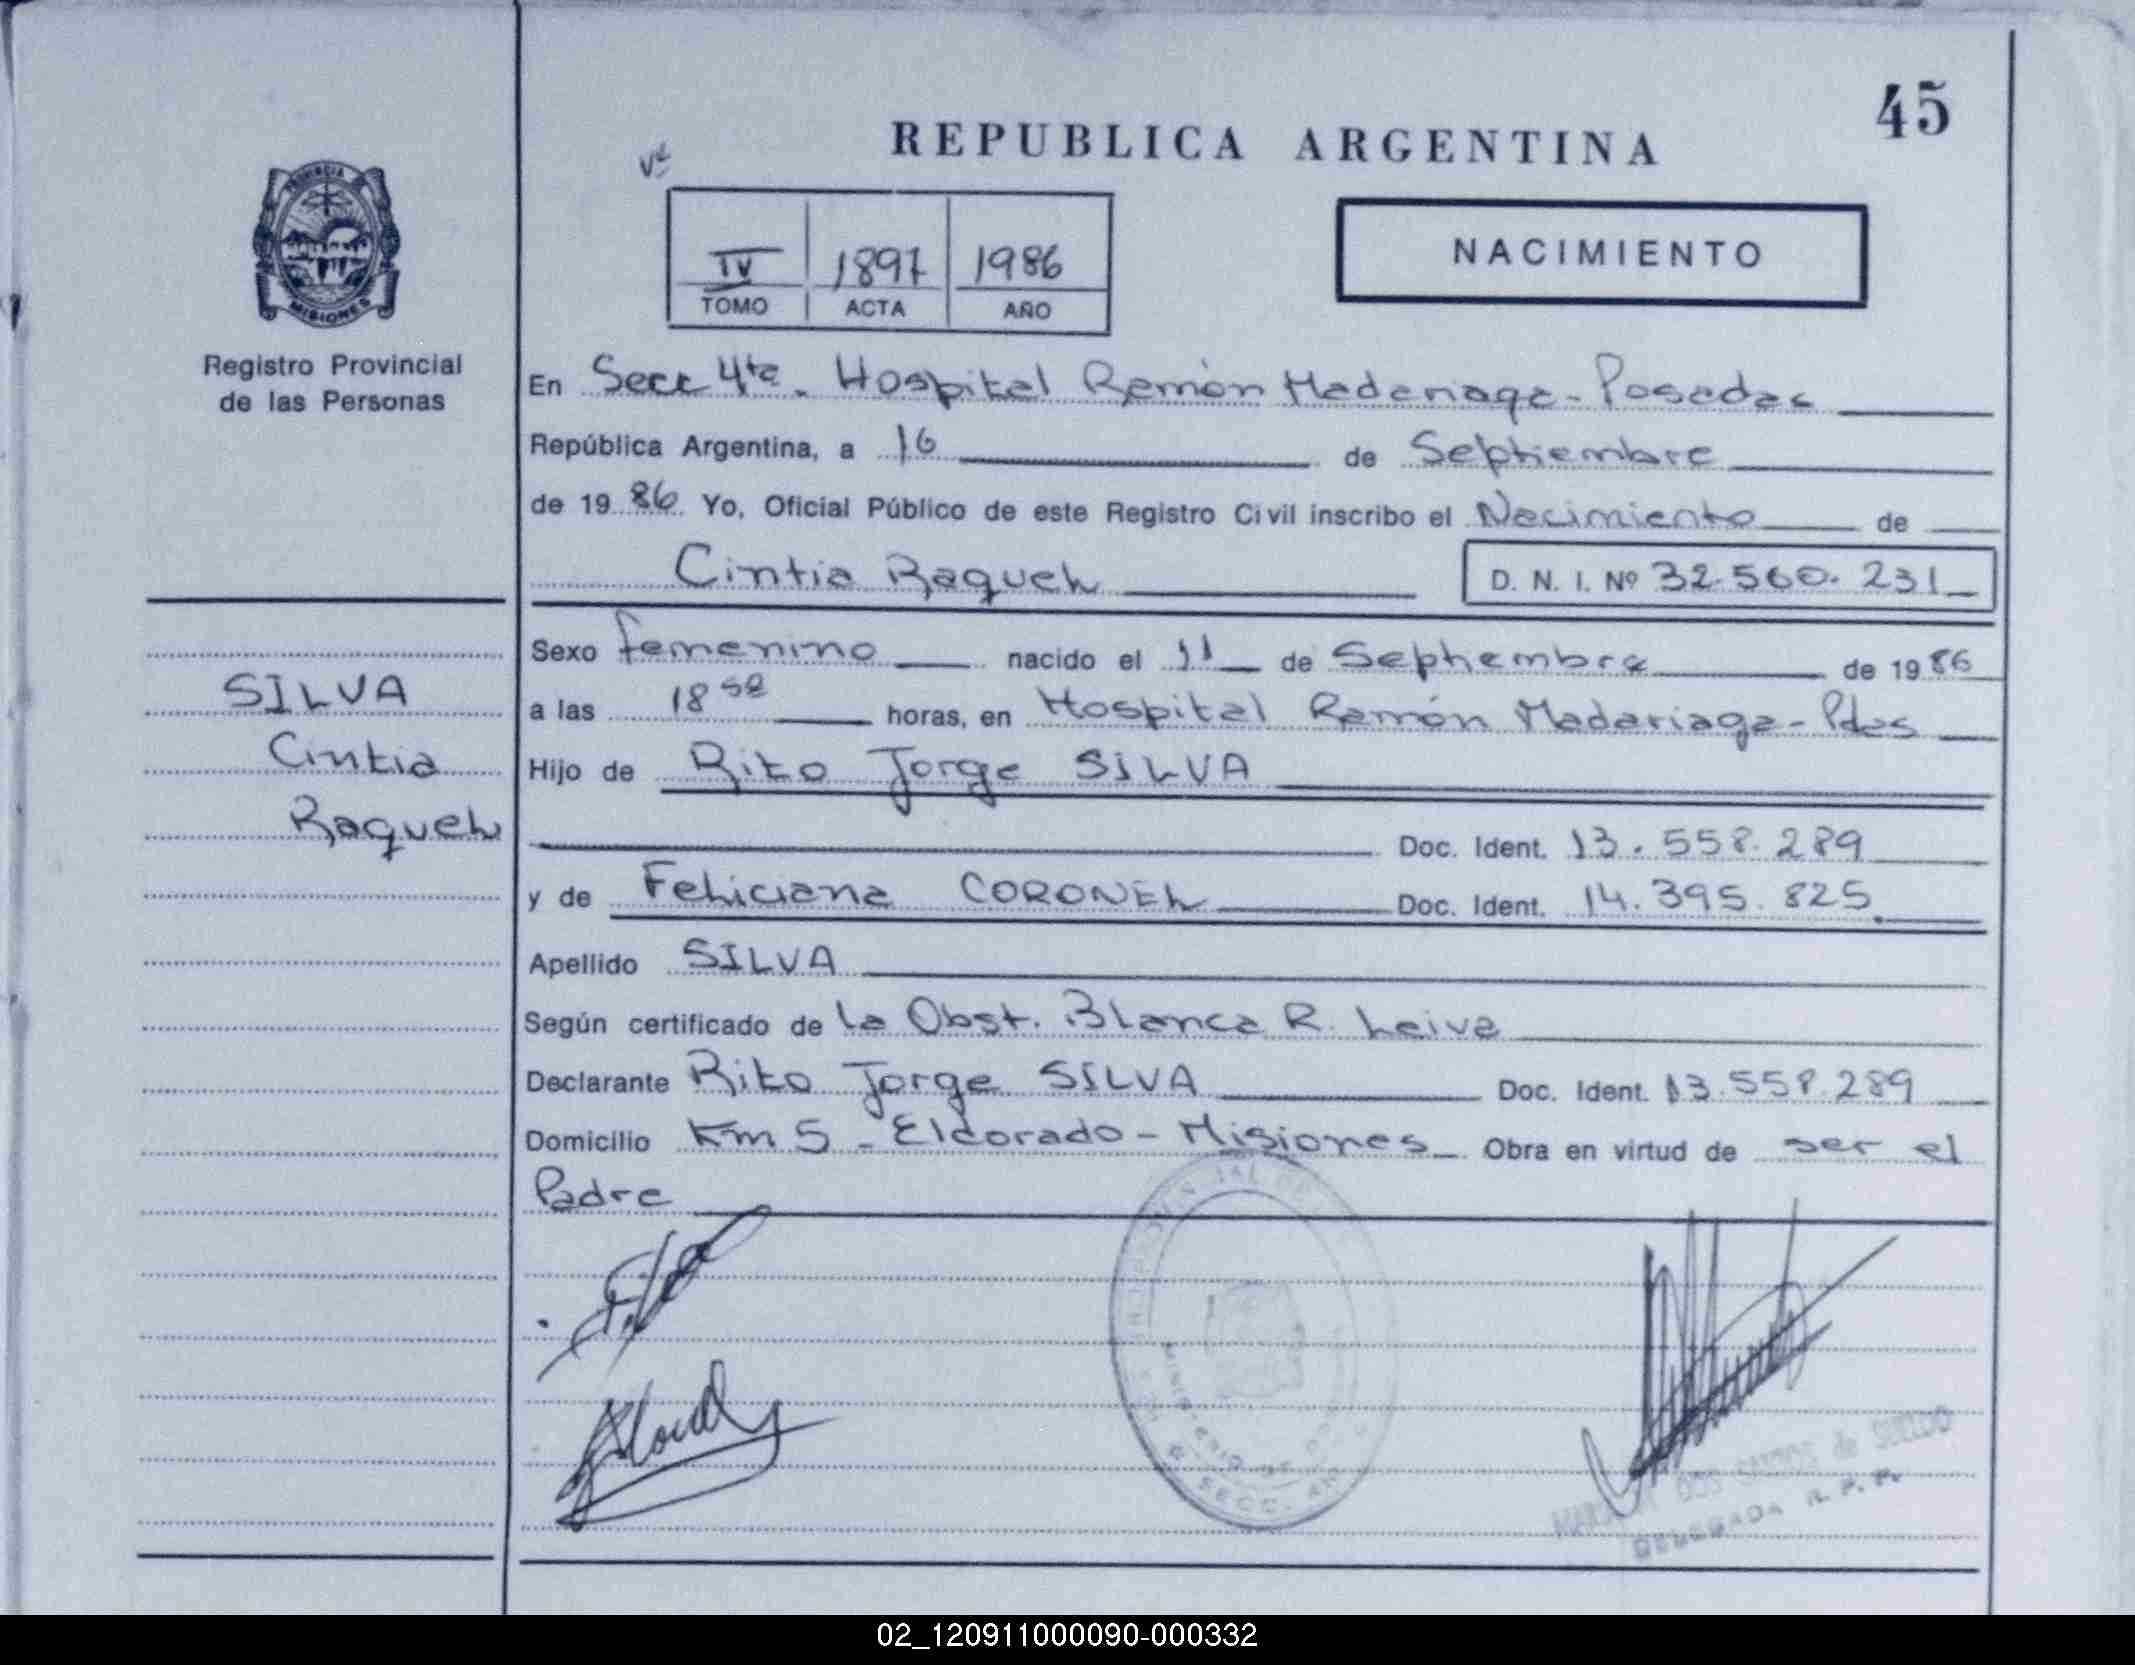 45
REPUBLICA ARGENTINA
NACIMIENTO
IV 1897 1986
TOMO ACTA AÑO
PROVINCIA DE
MISIONES
Registro Provincial
de las Personas
SILVA
Cintia
Raquel
En Secc 4ta. Hospital Ramón Madariaga - Posadas
República Argentina, a 16 de Septiembre
de 1986 Yo, Oficial Público de este Registro Civil inscribo el Nacimiento de
Cintia Raquel D. N. I. Nº 32.560.231
Sexo femenino nacido el 11 de Septiembre de 1986
a las 18 horas, en Hospital Ramón Madariaga - Pdas
Hijo de Rito Jorge SILVA
Doc. Ident. 13.558.289
y de Feliciana CORONEL Doc. Ident. 14.395.825
Apellido SILVA
Según certificado de la Obst. Blanca R. Leiva
Declarante Rito Jorge SILVA Doc. Ident. 13.558.289
Domicilio Km 5 - Eldorado - Misiones Obra en virtud de ser el
Padre
SECC. 4
DOS SANTOS de SUELDO
DELEGADA R. P. P.
02_120911000090-000332